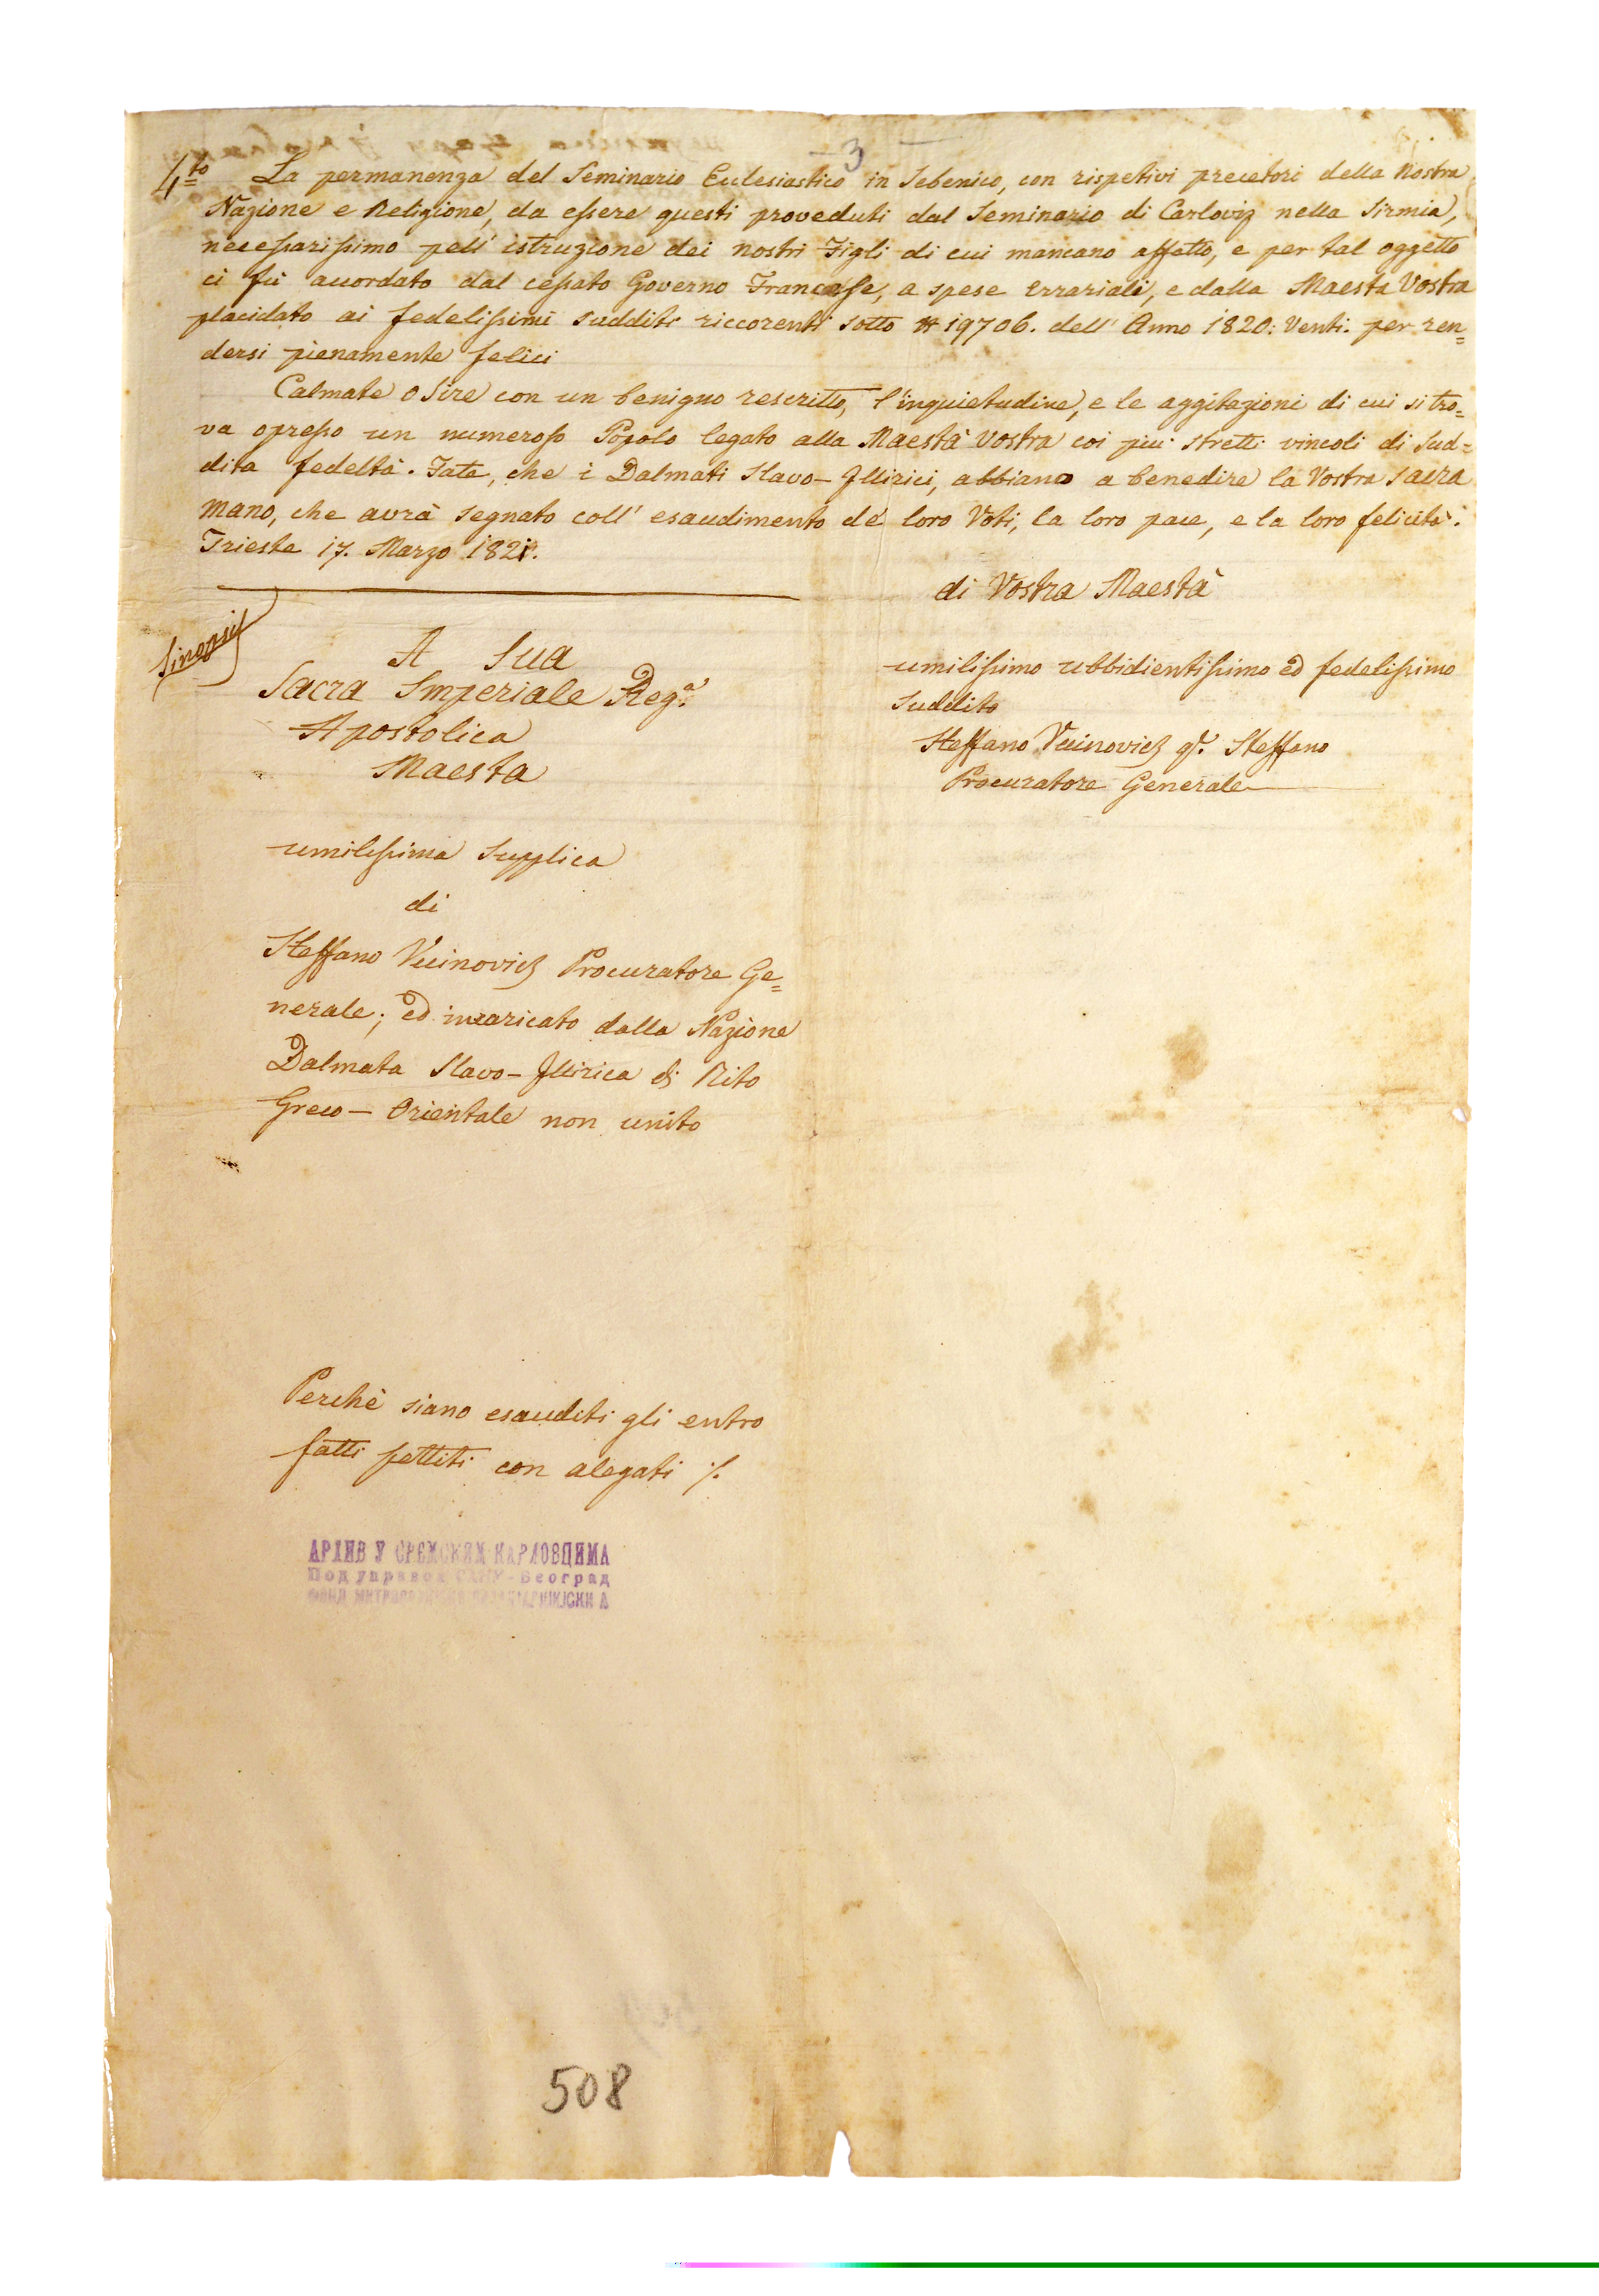 - 3 -
4to La permanenza del Seminario Eclesiastico in Sebenico, con rispetivi precetori della Nostra
Nazione e Religione, da essere questi proveduti dal Seminario di Carloviz nella Sirmia,
necessarissimo pell' istruzione dei nostri Figli di cui mancano affatto, e per tal oggetto
ci fù accordato dal cessato Governo Francese, a spese Errariali, e dalla Maestà Vostra
placidato ai fedelissimi sudditi riccorenti sotto # 19706. dell' Anno 1820: Venti. per ren=
dersi pienamente felici
Calmate o Sire con un benigno rescritto, l'inquietudine, e le aggitazioni di cui si tro=
va opresso un numeroso Popolo legato alla Maestà Vostra coi piu stretti vincoli di Sud=
dita fedeltà. Fate, che i Dalmati Slavo-Illirici, abbiano a benedire la Vostra sacra
mano, che avrà segnato coll' esaudimento de' loro Voti, la loro pace, e la loro felicità.
Trieste 17. Marzo 1821.
di Vostra Maestà
umilissimo ubbidientissimo ed fedelissimo
suddito
Steffano Vucinovich qm. Steffano
Procuratore Generale
Sinopsis
A Sua
Sacra Imperiale Rega.
Apostolica
Maesta
umilissima Supplica
di
Steffano Vucinovich Procuratore Ge=
nerale; ed incaricato dalla Nazione
Dalmata Slavo-Illirica di Rito
Greco-Orientale non unito
Perchè siano esauditi gli entro
fatti pettiti con alegati ./.
АРХИВ У СРЕМСКИМ КАРЛОВЦИМА
Под управом САНУ - Београд
508